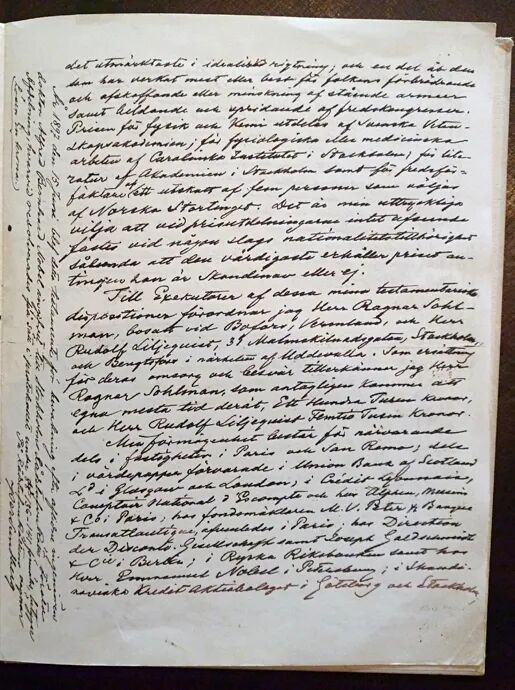 det utmärktaste i idealisk rigtning; och en del åt den
som har verkat mest eller best för folkens förbrödrande
och afskaffande eller minskning af stående armeer
samt bildande och spridande af fredskongresser.
Prisen för fysik och kemi utdelas af Svenska Veten-
skapsakademien; för fysiologiska eller medicinska
arbeten af Carolinska Institutet i Stockholm; för lite-
ratur af Akademien i Stockholm samt för fredsför-
fäktare af ett utskott af fem personer som väljas
af Norska Stortinget. Det är min uttryckliga
vilja att vid prisutdelningarne intet afseende
fästes vid någon slags nationalitetstillhörighet
sålunda att den värdigaste erhåller priset an-
tingen han är Skandinav eller ej.
Till Exekutorer af dessa mina testamentariska
dispositioner förordnar jag Herr Ragnar Sohl-
man, bosatt vid Bofors, Vermland, och Herr
Rudolf Liljequist, 31 Malmskilnadsgatan, Stockholm,
och Bengtsfors i närheten af Uddevalla. Som ersättning
för deras omsorg och besvär tillerkänner jag Herr
Ragnar Sohlman, som antagligen kommer att
egna mesta tid deråt, Ett Hundra Tusen Kronor,
och Herr Rudolf Liljequist Femtio Tusen Kronor.
Min förmögenhet består för närvarande
dels i fastigheter i Paris och San Remo; dels
i värdepapper förvarade i Union Bank of Scotland
Ld i Glasgow och London; i Crédit Lyonnais,
Comptoir National d'Escompte och hos Alphen, Messin
& Co i Paris; hos fondmäklaren M. V. Peter & Banque
Transatlantique, äfvenledes i Paris; hos Direction
der Disconto Gesellschaft samt Joseph Goldschmidt
& Cie i Berlin; i Ryska Riksbanken samt hos
Herr Emmanuel Nobel i Petersburg; i Skandi-
naviska Kredit Aktiebolaget i Göteborg och Stockholm,